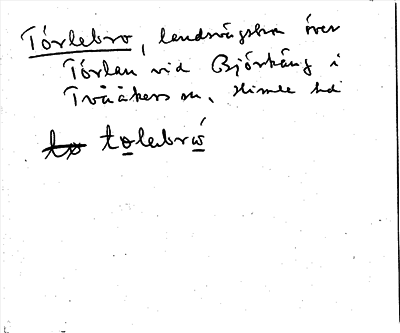 Törlebro, landsvägsbro över
Törlan vid Björkäng i
Tvååkers sn, Himle hd
to tolebrω